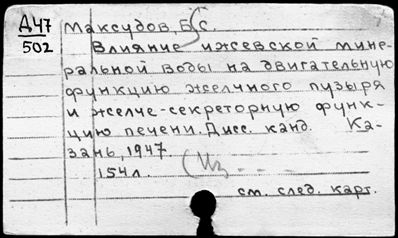 Д47
502
Максудов, Б.С.
Влияние ижевской мине-
ральной воды на двигательную
функцию желчного пузыря
и желче-секреторную функ-
цию печени. Дисс. канд. Ка-
зань, 1947.
154л. (Из
см. след. карт.